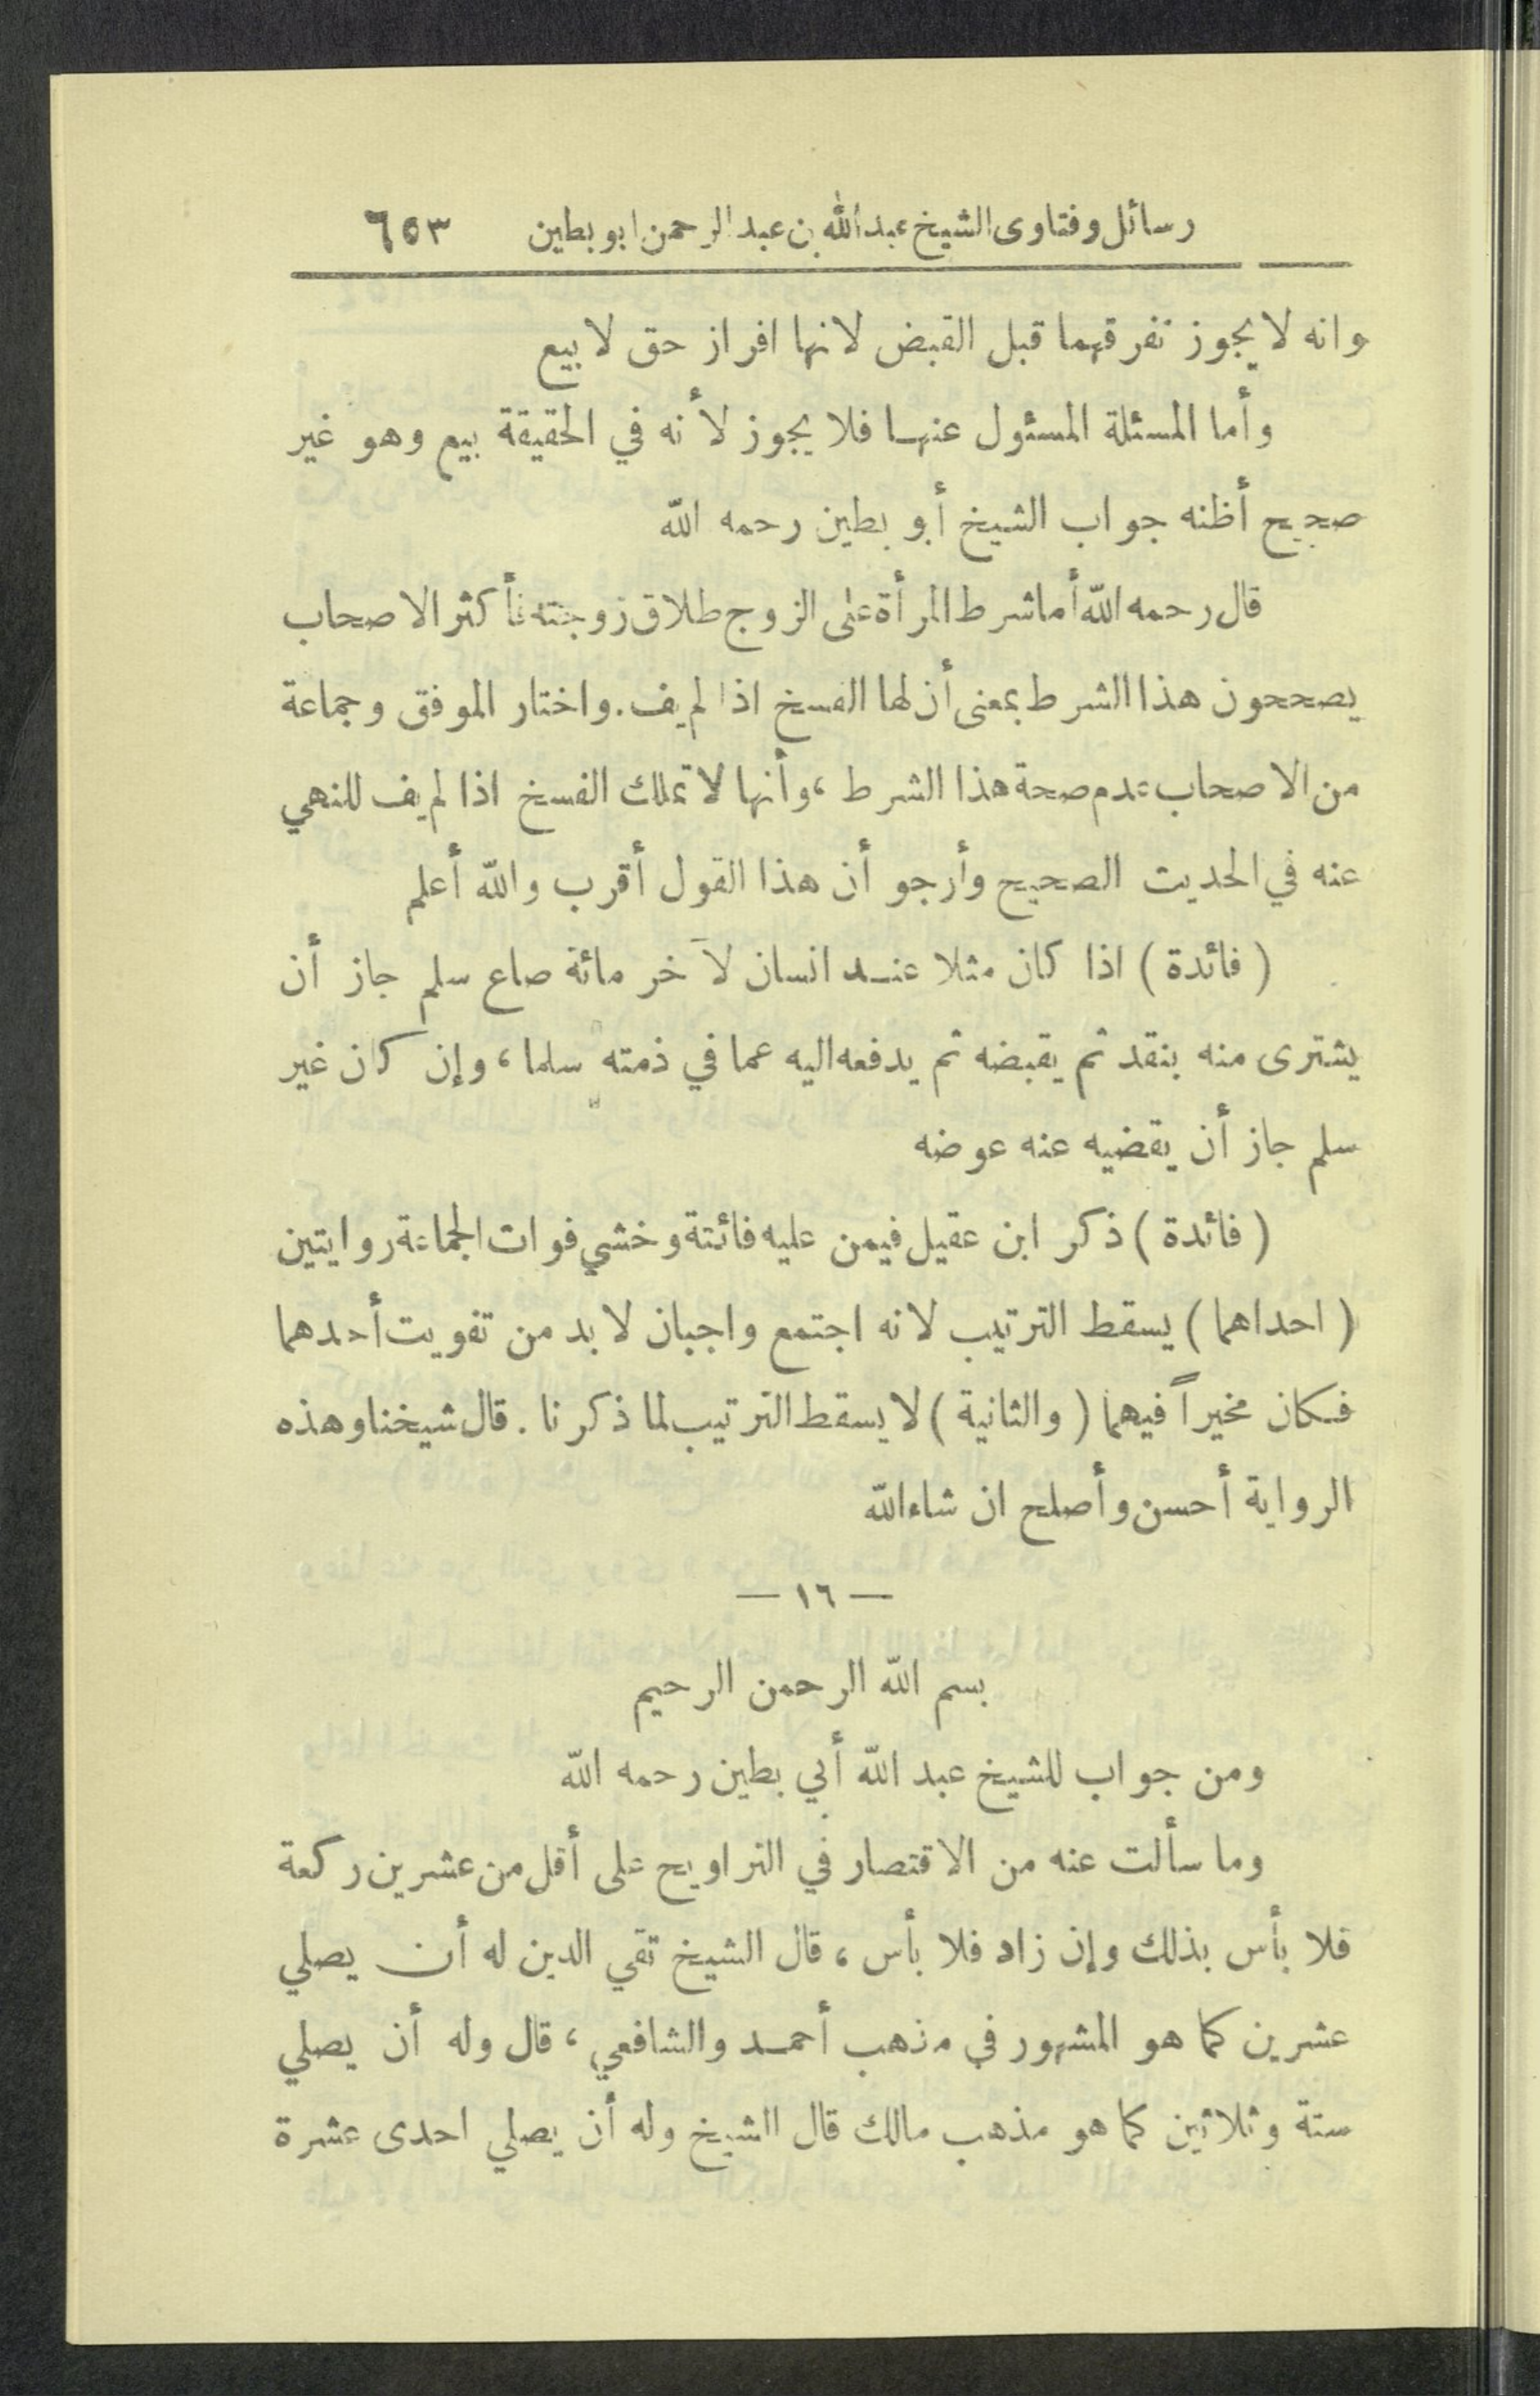 رسائل وفتاوى الشيخ عبدالله بن عبد الرحمن ابو بطين ٦٥٣
وانه لا يجوز تفرقهما قبل القبض لانها افراز حق لا بيع
وأما المسئلة المسئول عنها فلا يجوز لأنه في الحقيقة بيع وهو غير
صحيح أظنه جواب الشيخ أبو بطين رحمه الله
قال رحمه الله أما شرط المرأة على الزوج طلاق زوجته فأكثر الاصحاب
يصححون هذا الشرط بمعنى أن لها الفسخ اذا لم يف. واختار الموفق وجماعة
من الاصحاب عدم صحة هذا الشرط ، وأنها لا تملك الفسخ اذا لم يف للنهي
عنه في الحديث الصحيح وأرجو أن هذا القول أقرب والله أعلم
( فائدة ) اذا كان مثلا عند انسان لآخر مائة صاع سلم جاز أن
يشترى منه بنقد ثم يقبضه ثم يدفعه اليه عما في ذمته سلما ، وإن كان غير
سلم جاز أن يقضيه عنه عوضه
( فائدة ) ذكر ابن عقيل فيمن عليه فائتة وخشي فوات الجماعة روايتين
( احداهما ) يسقط الترتيب لانه اجتمع واجبان لا بد من تفويت أحدهما
فكان مخيراً فيهما ( والثانية ) لا يسقط الترتيب لما ذكرنا . قال شيخنا وهذه
الرواية أحسن وأصلح ان شاء الله
— ١٦ —
بسم الله الرحمن الرحيم
ومن جواب للشيخ عبد الله أبي بطين رحمه الله
وما سألت عنه من الاقتصار في التراويح على أقل من عشرين ركعة
فلا بأس بذلك وإن زاد فلا بأس ، قال الشيخ تقي الدين له أن يصلي
عشرين كما هو المشهور في مذهب أحمد والشافعي ، قال وله أن يصلي
ستة وثلاثين كما هو مذهب مالك قال الشيخ وله أن يصلي احدى عشرة